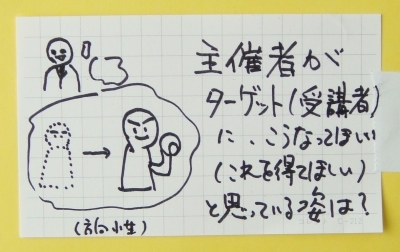 主催者が
ターゲット(受講者)
に、こうなってほしい
(これを得てほしい)
と思っている姿は?
(方向性)